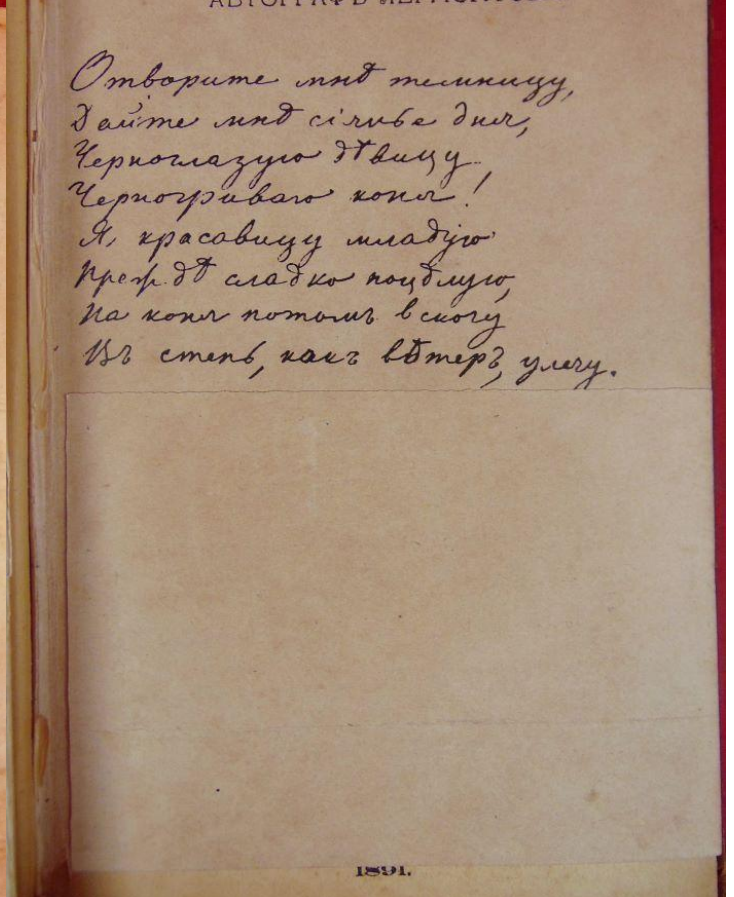 АВТОГРАФЪ ЛЕРМОНТОВА
Отворите мнѣ темницу,
Дайте мнѣ сіянье дня,
Черноглазую дѣвицу
Черногриваго коня!
Я, красавицу младую
Прежде сладко поцѣлую,
На коня потомъ вскочу
Въ степь, какъ вѣтеръ, улечу.
1891.